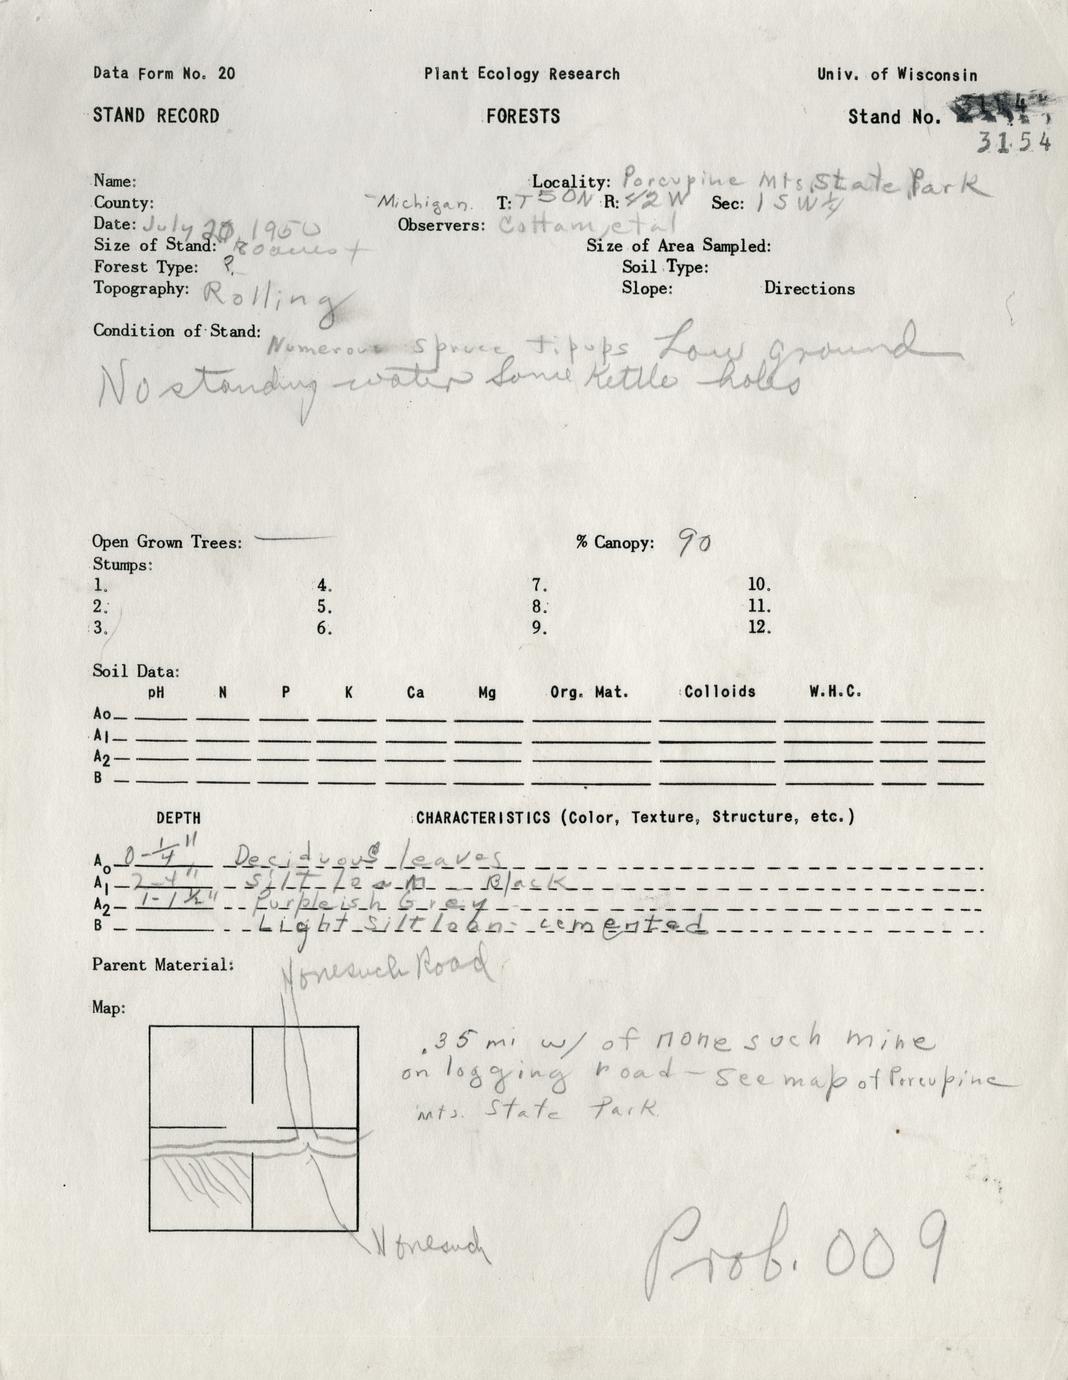 Data Form No. 20 Plant Ecology Research Univ. of Wisconsin
STAND RECORD FORESTS Stand No.
3154
Name: Locality: Porcupine Mts. State Park
County: Michigan. T: T50N R: 42W Sec: 1 SW¼
Date: July 20, 1950 Observers: Cottam, et al
Size of Stand: acres + Size of Area Sampled:
Forest Type: ? Soil Type:
Topography: Rolling Slope: Directions
Condition of Stand: Numerous spruce tipups Low ground
No standing water Some Kettle holes
Open Grown Trees: — % Canopy: 90
Stumps:
1. 4. 7. 10.
2. 5. 8. 11.
3. 6. 9. 12.
Soil Data:
pH N P K Ca Mg Org. Mat. Colloids W.H.C.
Ao
A1
A2
B
DEPTH CHARACTERISTICS (Color, Texture, Structure, etc.)
Ao 0-¼" Deciduous leaves
A1 2-4" Silt loam Black
A2 1-1½" Purpleish Grey
B Light Silt loan- cemented
Parent Material: Nonesuch Road
Map:
.35 mi w/ of none such mine
on logging road - See map of Porcupine
mts. State Park
Nonesuch
Prob. 009